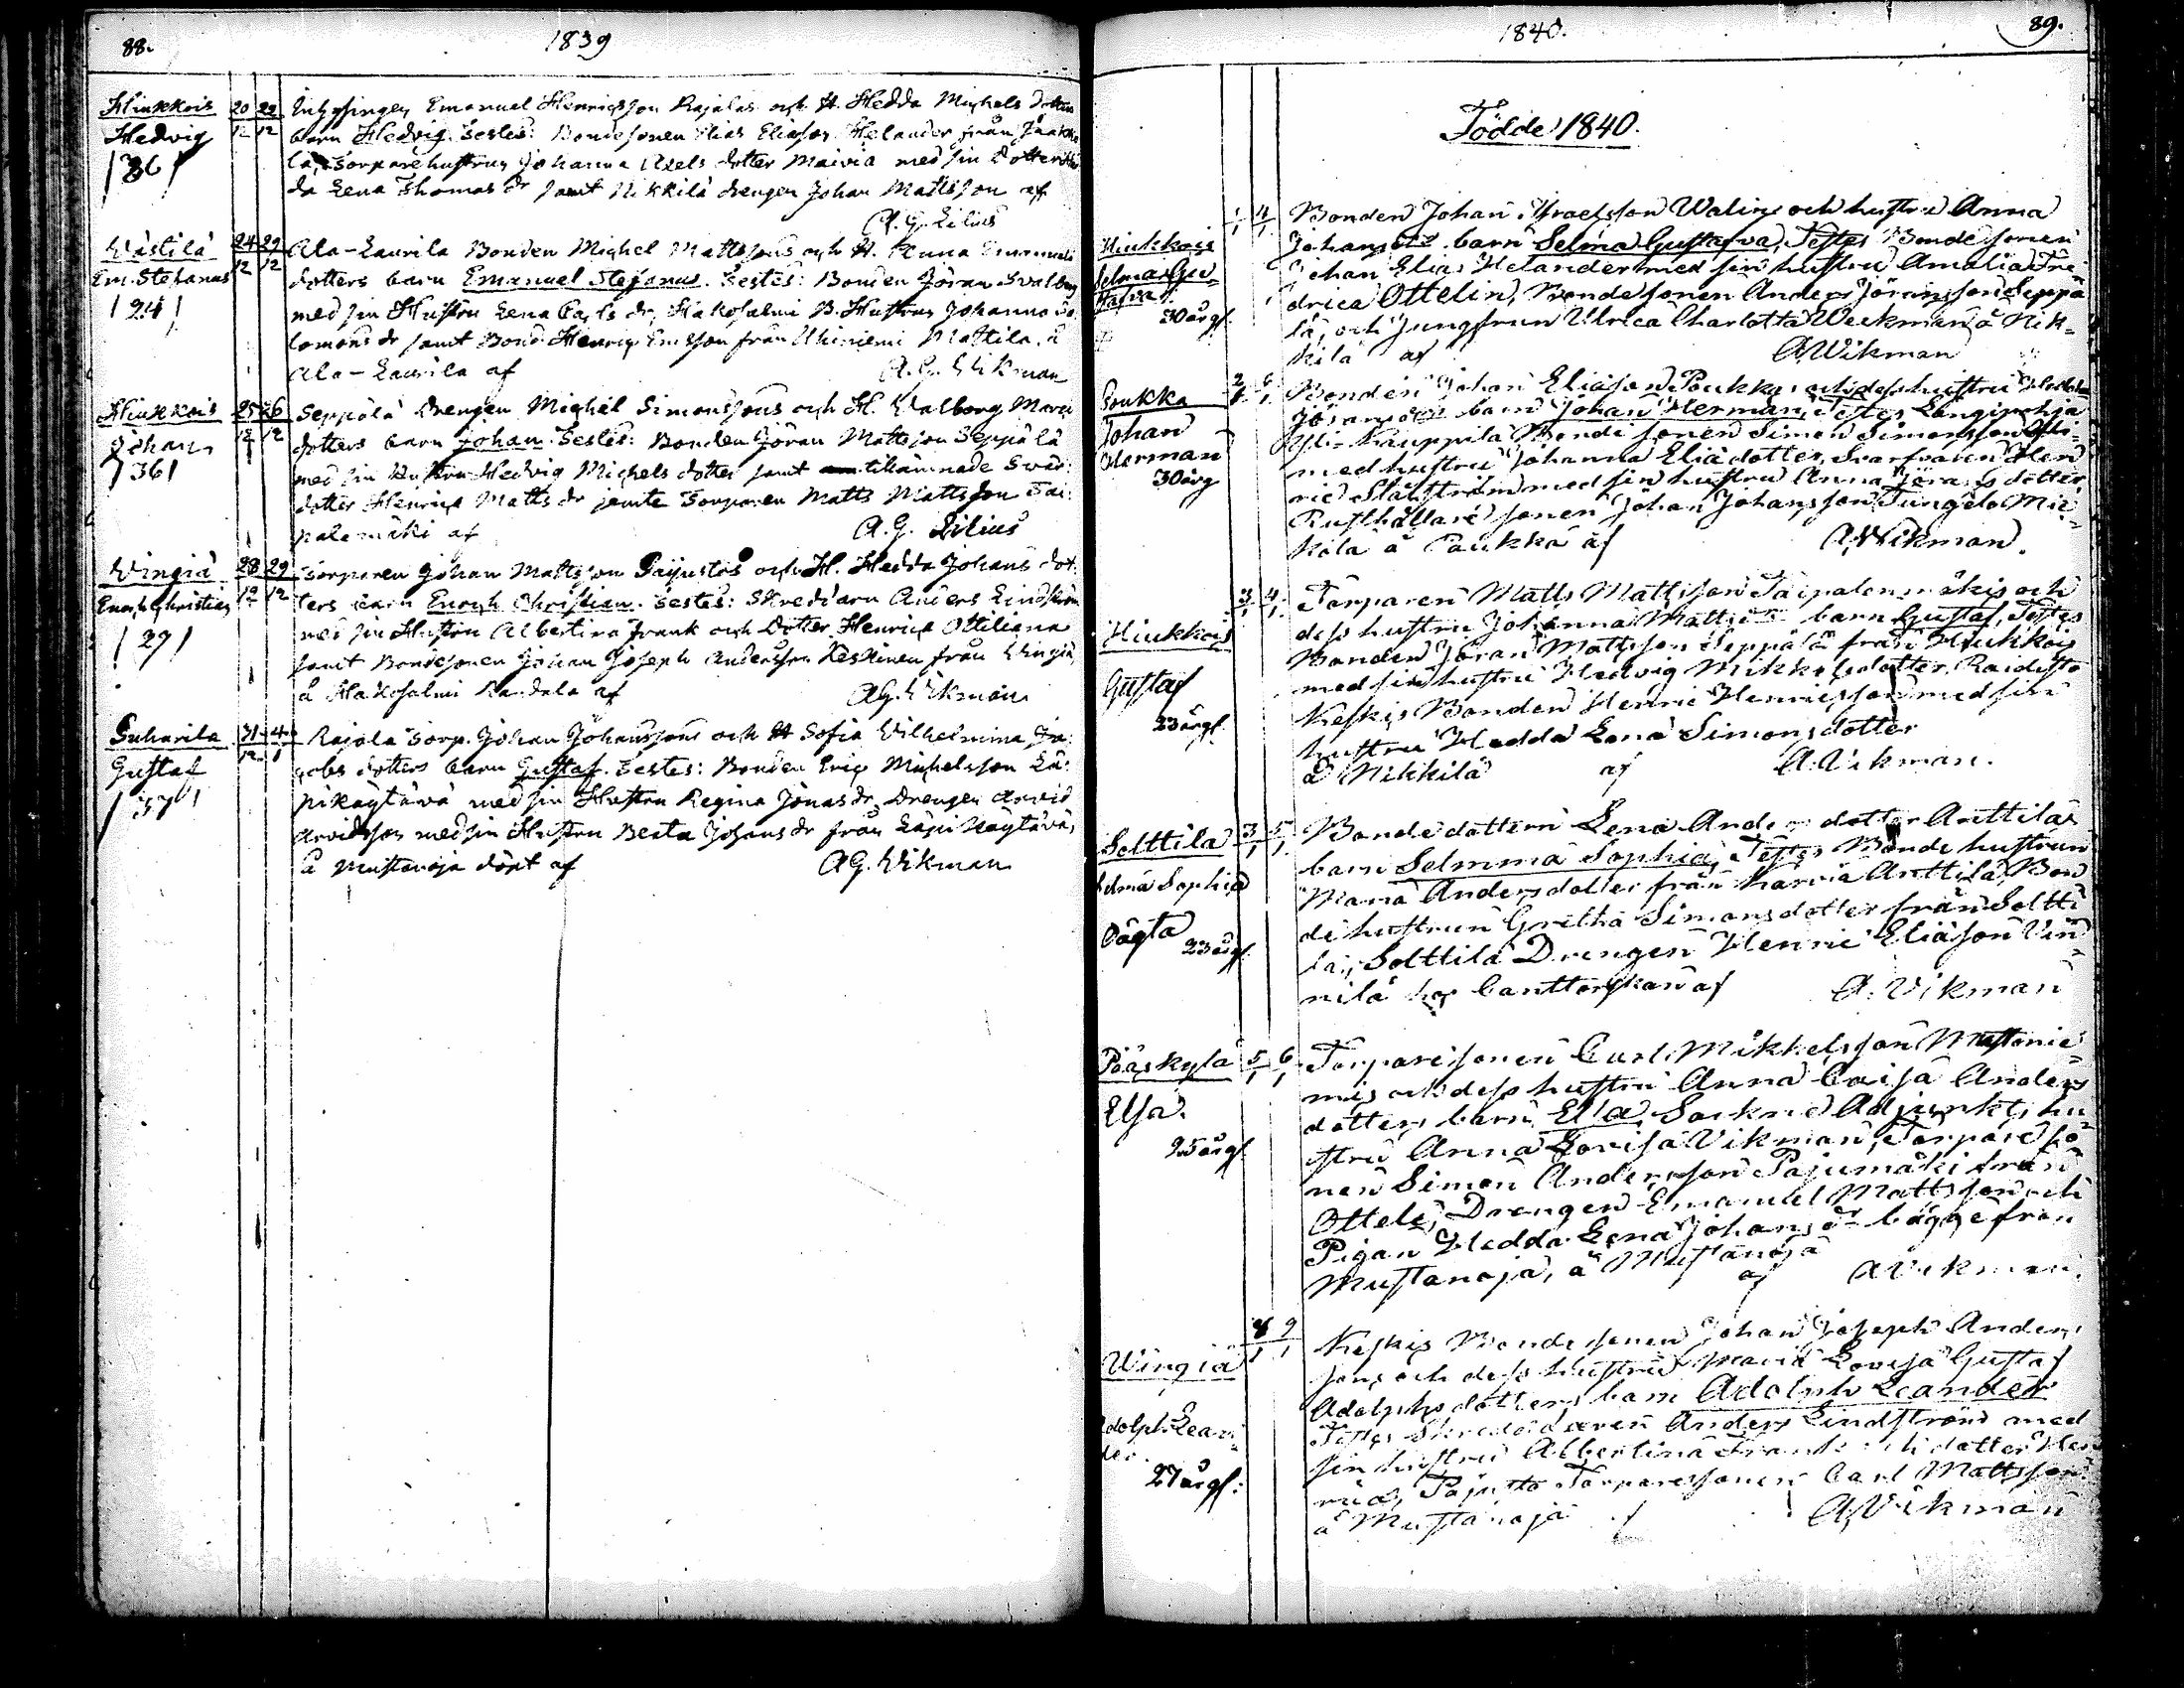 88.
1839
Hiukkois 20/12 22/12 Inhysingen Emanuel Henricsson Rajalas och H. Hedda Michels dotters
Hedvig barn Hedvig. Testes: Bondesonen Elias Eliasson Helander från Jaakko
/36/ la, Torparehustrun Johanna Axels dotter Maivia med sin dotter
da Lena Thomas dr samt Nikkilä drengen Johan Mattsson af
A. G. Lilius
Wästilä 24/12 29/12 Ala-Laurila Bonden Michel Mattssons och H. Anna Emanuels
Em. Stefanus dotters barn Emanuel Stefanus. Testes: Bonden Jöran Svalberg
/24/ med sin Hustru Lena Carls dr, Hakosalmi B. Hustrun Johanna Sa
lomons dr samt Bond. Henric Ericsson från Uhiniemi Mattila. å
Ala-Laurila af A. G. Wikman
Hiukkois 25/12 26/12 Seppälä Drengen Michel Simonssons och H. Walborg Maria
Johan dotters barn Johan. Testes: Bonden Jöran Mattsson Seppälä
/36/ med sin Hustru Hedvig Michels dotter samt
dotter Henrica Matts dr jemte Torparen Matts Mattsson Tai-
palemäki af A. G. Lilius
Wingiä 28/12 29/12 Torparen Johan Mattsson Pajustos och H. Hedda Johans dot
Enoch Christian ters barn Enoch Christian. Testes: Skreddarn Anders Lindström
/27/ med sin Hustru Albertina Frank och dotter Henrica Ottiliana
samt Bondesonen Johan Joseph Andersson Keskinen från Wingiä
å Hakosalmi Randala af AG. Wikman
Suharila 31/12 4/1 Rajala Torp. Johan Johanssons och H Sofia Wilhelmina Ja-
Gustaf cobs dotters barn Gustaf. Testes: Bonden Eric Michelsson Lä-
/37/ pikäytävä med sin Hustru Regina Jonas dr, Drengen Arvid
Arvidsson med sin Hustru Beata Johans dr från Läpikäytävä,
å Mustanoja döpt af AG. Wikman
1840.
89.
Födde 1840.
1/1 4/1 Bonden Johan Israelsson Walins och hustru Anna
Hiukkois Johans dtrs barn Selma Gustafva, Testes Bondesonen
Selma Gu- Johan Elias Helander med sin hustru Amalia Fre-
stafva drica Ottelin, Bondesonen Anders Jöransson Seppä
30 årg. lä, och Jungfrun Ulrica Charlotta Weckman å Nik-
kilä af A Wikman
Poukka 2/1 6/1 Bonden Johan Eliasson Poukka och dess hustru
Johan Jörans dtrs barn Johan Herman, Testes Längipohja
Herman Yli-Kauppila Bondesonen Simon Simonsson
30 årg med hustru Johanna Elias dotter, Svarfvaren Hen
ric Slättström med sin hustru Anna Jörans dotter
Rusthållare sonen Johan Johansson Tungelo Mic-
kola å Paukka af A Wikman.
3/1 4/1 Torparen Matts Mattsson Taipalenmäkis och
Hiukkois dess hustru Johanna Matts dtrs barn Gustaf, Testes
Gustaf Bonden Jöran Mattsson Seppälä från Hiukkois
33 årg. med sin hustru Hedvig Mikkels dotter, Raudisto
Keskis Bonden Henric Henricsson med sin
hustru Hedda Lena Simons dotter
å Nikkilä af A. Wikman.
Solttila 3/1 5/1 Bondedottern Lena Anders dotter Anttilas
Selma Sophia barn Selmma Sophia, Testes Bonde hustrun
Oägta Maria Anders dotter från Karvia Anttila, Bon
23 årg. dehustrun Gretha Simons dotter från Soltti
la, Solttila Drengen Henric Eliasson Vin-
nilä hos Canttorskan af A. Vikman
Pääskylä 5/1 6/1 Torparesonen Carl Mikkelsson Mustanie-
Elsa. mis och dess hustru Anna Caisa Anders
25 årg. dotters barn Elsa Sockne Adjunkts hu
stru Anna Lovisa Vikman, Torpareso-
nen Simon Andersson Pajumäki från
Ottele, Drengen Emanuel Mattsson och
Pigan Hedda Lena Johans dr bägge från
Mustanoja, å Mustanoja af A Vikman.
Wingiä 8/1 9/1 Keskis Bondesonen Johan Joseph Anders
sons och dess hustru Maria Lovisa Gustaf
Adolphs dotters barn Adolph Leander
Adolph Lean- Testes Skreddaren Anders Lindström med
der. sin hustru Albertina Frank och dotter Hen
27 årg. rica, Pajusto Torparesonen Carl Mattsson
å Mustanoja af A Vikman